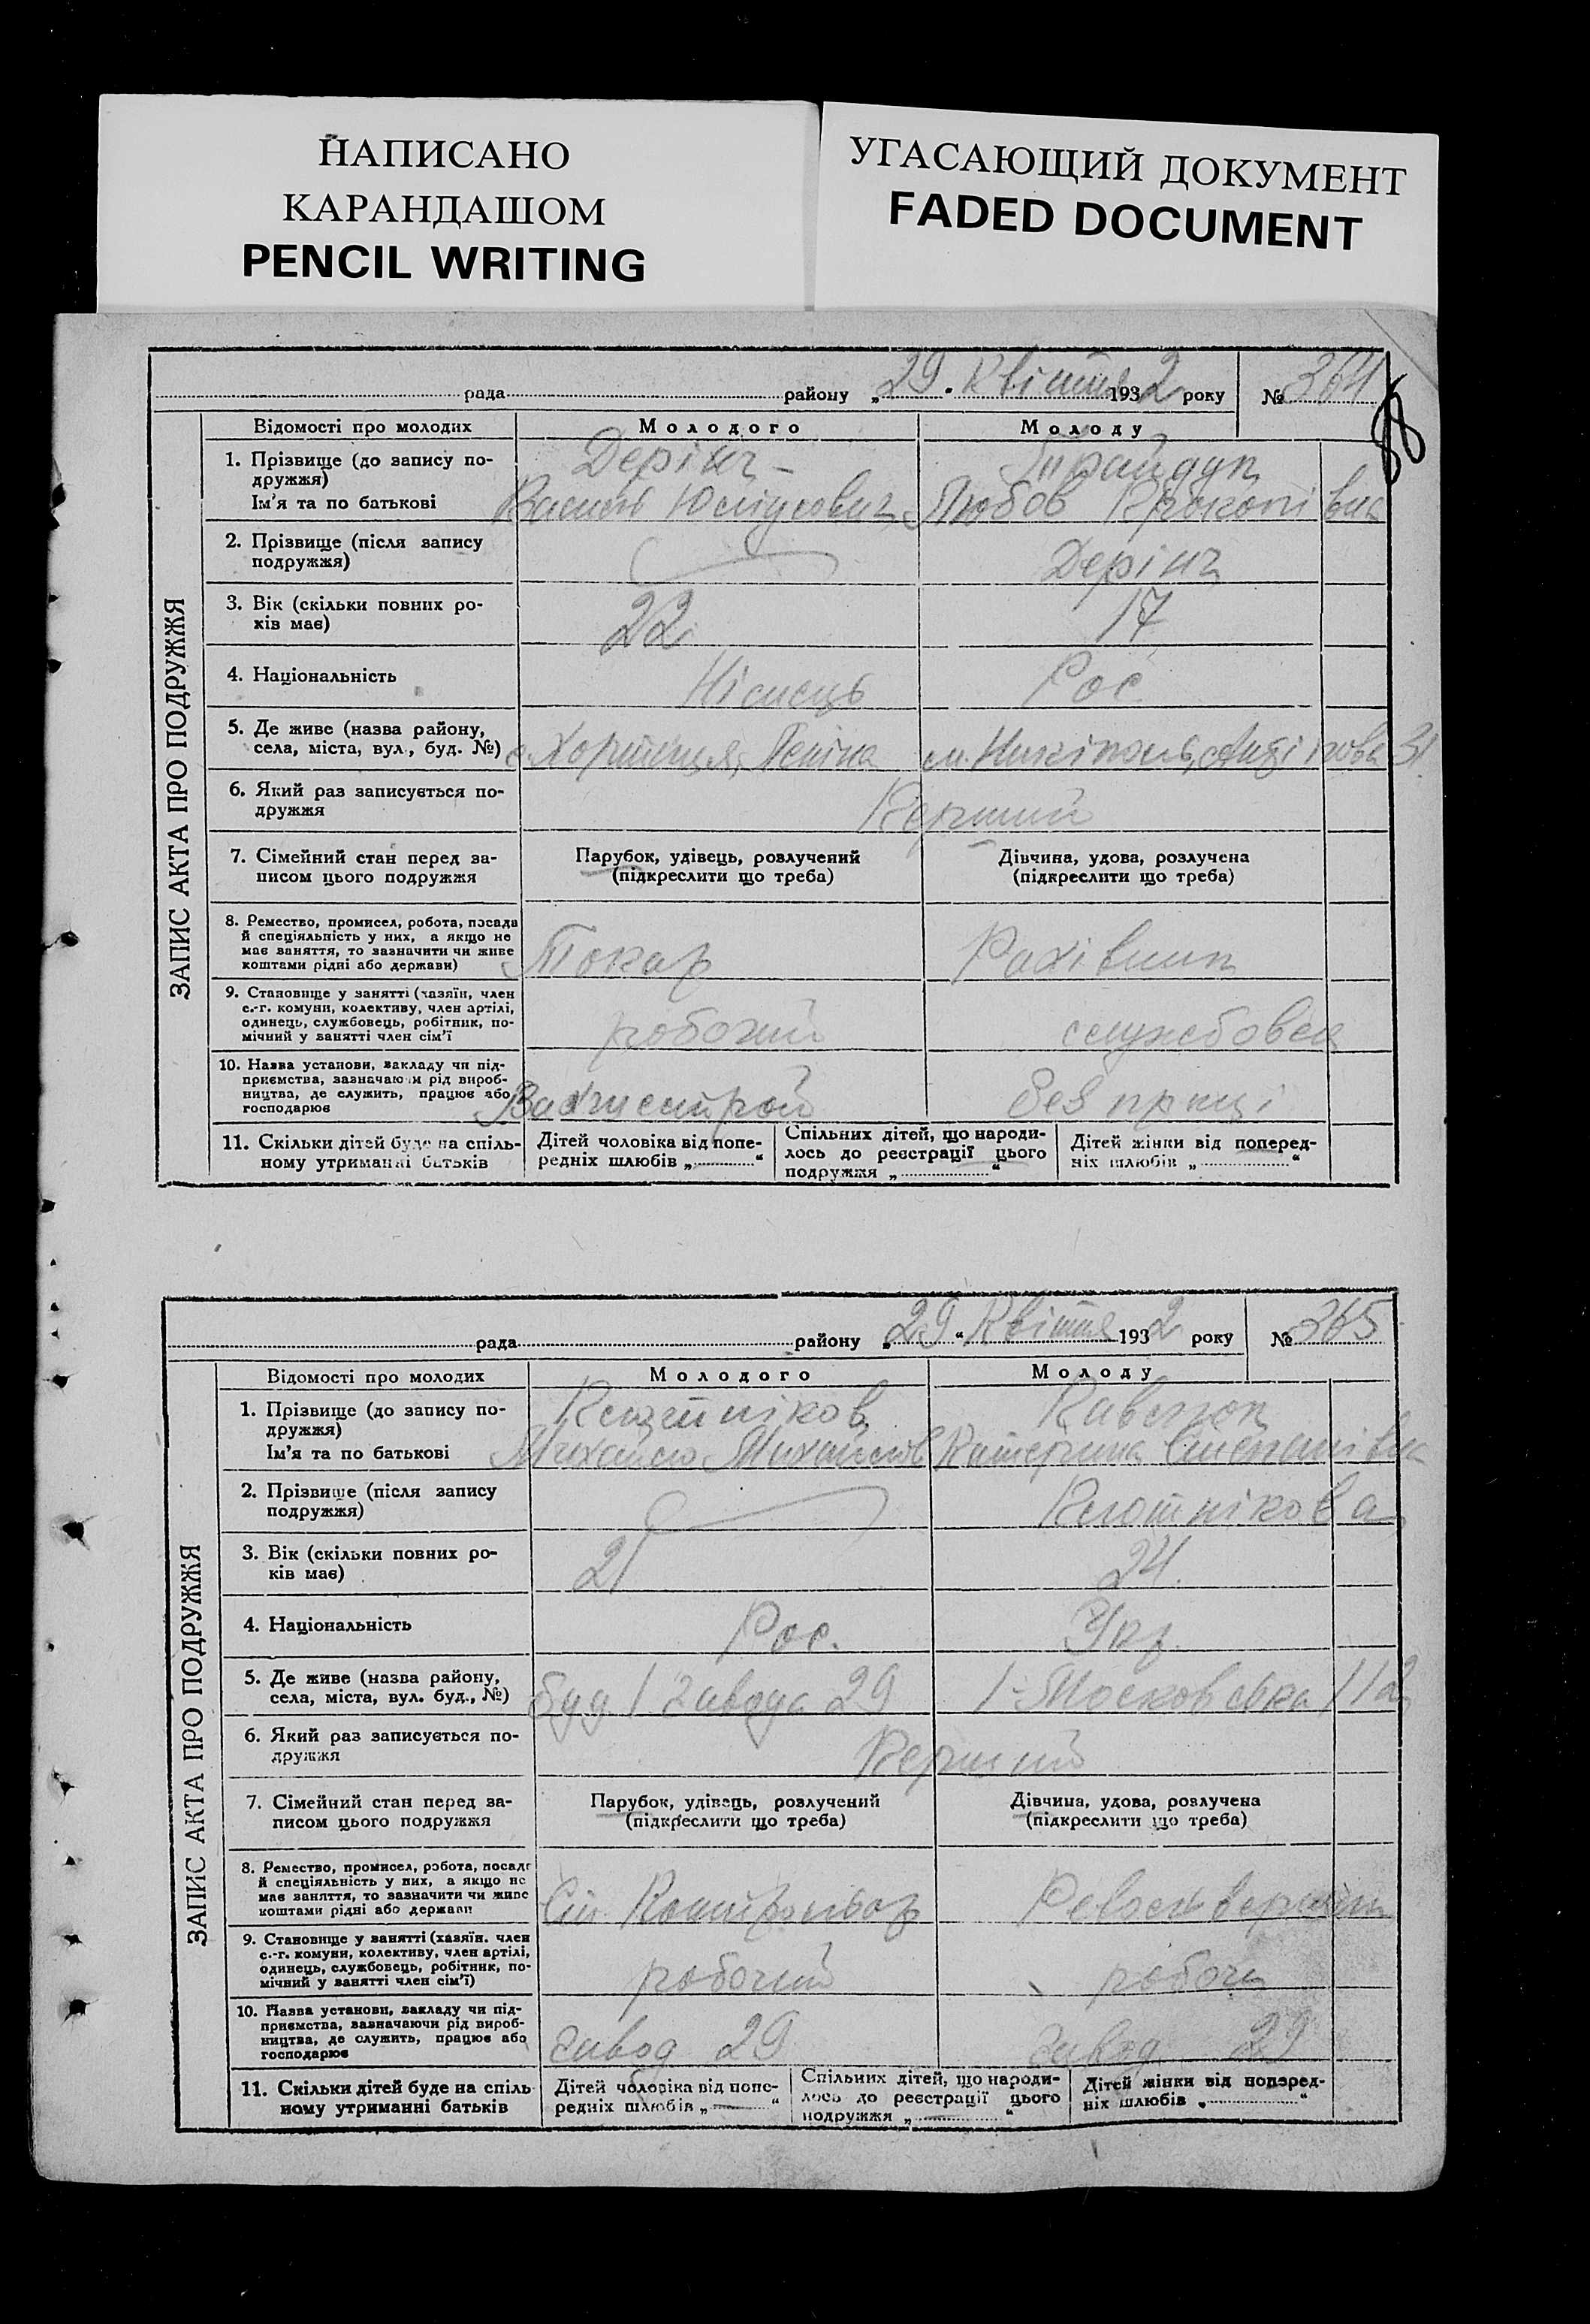 НАПИСАНО
КАРАНДАШОМ
PENCIL WRITING
УГАСАЮЩИЙ ДОКУМЕНТ
FADED DOCUMENT
88
ЗАПИС АКТА ПРО ПОДРУЖЖЯ
рада району „29. Квітня 1932 року № 364
Відомості про молодих Молодого Молоду
1. Прізвище (до запису по-
дружжя)
Дерінг
Ім'я та по батькові Василь Юліусович Любов Прокопівна
2. Прізвище (після запису
подружжя)
Дерінг
3. Вік (скільки повних ро-
хів має)
22 17
4. Національність Німець Рос.
5. Де живе (назва району,
села, міста, вул., буд. №) с. Хортиця, Леніна м. Нікіполь, 31
6. Який раз записується по-
дружжя
Перший
7. Сімейний стан перед за-
писом цього подружжя
Парубок, удівець, розлучений
(підкреслити що треба)
Дівчина, удова, розлучена
(підкреслити що треба)
8. Ремество, промисел, робота, посада
й спеціяльність у них, а якщо не
має заняття, то зазначити чи живе
коштами рідні або держави)
Токар Рахівник
9. Становище у занятті (хазяїн, член
с.-г. комуни, колективу, член артілі,
одинець, службовець, робітник, по-
мічний у занятті член сім'ї
робочий службовец
10. Назва установи, закладу чи під-
приємства, зазначаючи рід вироб-
ництва, де служить, працює або
господарює
без праці
11. Скільки дітей буде на спіль-
ному утриманні батьків
Дітей чоловіка від попе-
редніх шлюбів „ “
Спільних дітей, що народи-
лось до реєстрації цього
подружжя „ “
Дітей жінки від поперед-
ніх шлюбів „ “
ЗАПИС АКТА ПРО ПОДРУЖЖЯ
рада району „29“ Квітня 1932 року № 365
Відомості про молодих Молодого Молоду
1. Прізвище (до запису по-
дружжя)
Ім'я та по батькові Михайло Михайлов Катерина Степанівна
2. Прізвище (після запису
подружжя)
Клотнікова
3. Вік (скільки повних ро-
ків має)
21 24.
4. Національність Рос. Укр.
5. Де живе (назва району,
села, міста, вул. буд., №) буд. 1 завода 29 1-Московська 112
6. Який раз записується по-
дружжя
Перший
7. Сімейний стан перед за-
писом цього подружжя
Парубок, удівець, розлучений
(підкреслити що треба)
Дівчина, удова, розлучена
(підкреслити що треба)
8. Ремество, промисел, робота, посада
й спеціяльність у них, а якщо не
має заняття, то зазначити чи живе
коштами рідні або держави
Контрольор
9. Становище у занятті (хазяїн, член
с.-г. комуни, колективу, член артілі,
одинець, службовець, робітник, по-
мічний у занятті член сім'ї)
робочий робоч
10. Назва установи, закладу чи під-
приємства, зазначаючи рід вироб-
ництва, де служить, працює або
господарює
завод 29 завод 29
11. Скільки дітей буде на спіль
ному утриманні батьків
Дітей чоловіка від попе-
редніх шлюбів „ “
Спільних дітей, що народи-
лось до реєстрації цього
подружжя „ “
Дітей жінки від поперед-
ніх шлюбів „ “